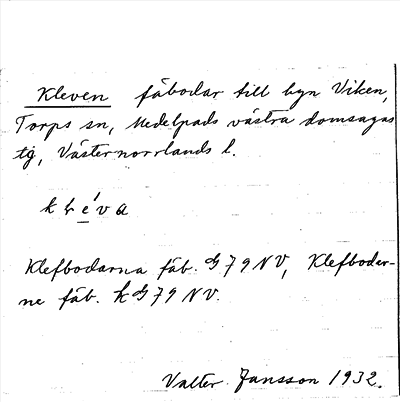 Kleven fäbodar till byn Viken,
Torps sn, Medelpads västra domsagas
tg, Västernorrlands l.
Klefbodarna fäb. G 79 NV, Klefboder-
ne fäb. k G 79 NV.
Valter Jansson 1932.